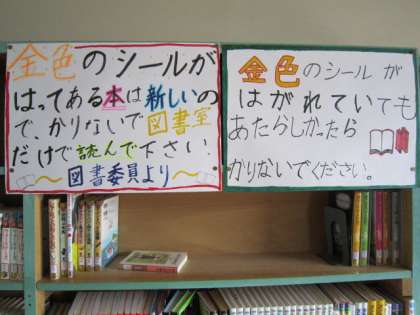 金色のシールが
はってある本は新しいの
で、かりないで図書室
だけで読んで下さい.
〜図書委員より〜
金色のシールが
はがれていても
あたらしかったら
かりないでください。